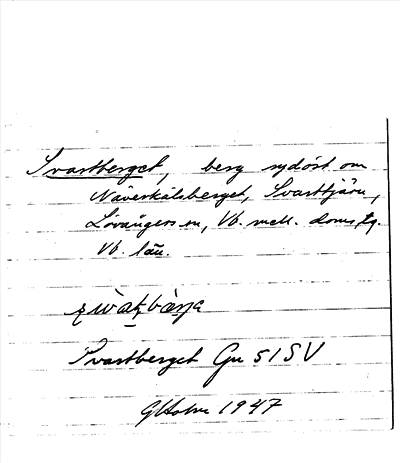 Svartberget, berg sydöst om
Näverkålsberget, Svarttjärn,
Lövångers sn, Vb. mell. doms. tg.
Vb. län.
Svartberget Gu 51 SV
GHolm 1947